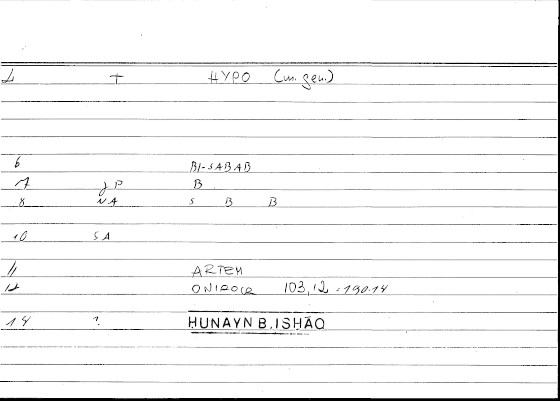 1 + HYPO (m. gen.)
6 BI-SABAB
7 JP B
8 NA S B B
10 SA
11 ARTEM
12 ONIROCR 103,12 = 190.14
14 ? HUNAYN B. ISḤĀQ